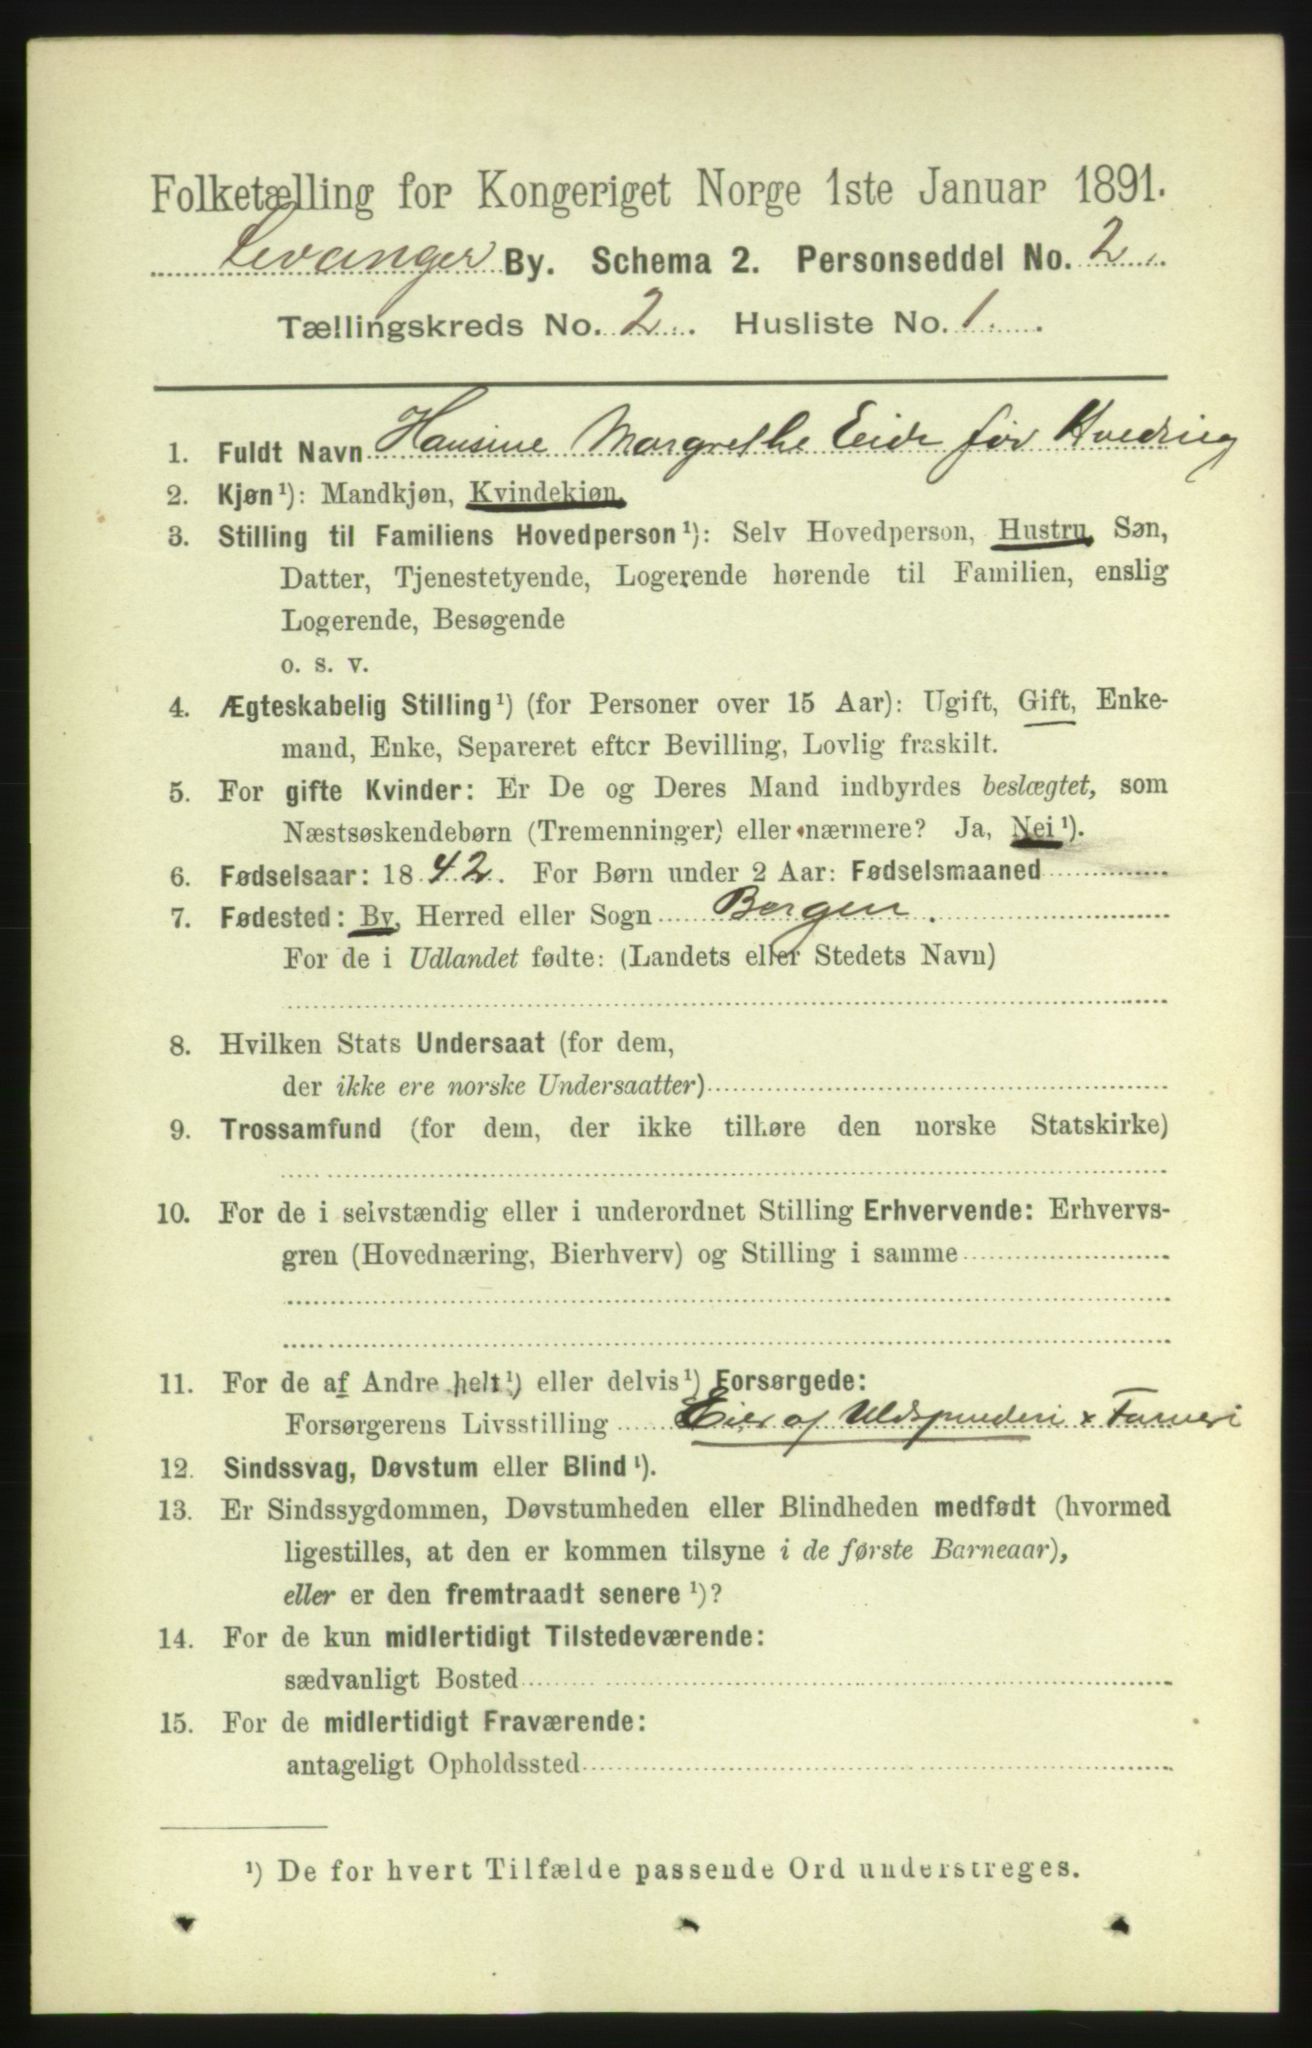 Folketælling for Kongeriget Norge 1ste Januar 1891.
Levanger By. Schema 2. Personseddel No. 2.
Tællingskreds No. 2. Husliste No. 1.
1. Fuldt Navn Hansine Margrethe Eide før Hvedring
2. Kjøn¹): Mandkjøn, Kvindekjøn.
3. Stilling til Familiens Hovedperson¹): Selv Hovedperson, Hustru, Søn,
Datter, Tjenestetyende, Logerende hørende til Familien, enslig
Logerende, Besøgende
o. s. v.
4. Ægteskabelig Stilling¹) (for Personer over 15 Aar): Ugift, Gift, Enke-
mand, Enke, Separeret efter Bevilling, Lovlig fraskilt.
5. For gifte Kvinder: Er De og Deres Mand indbyrdes beslægtet, som
Næstsøskendebørn (Tremenninger) eller nærmere? Ja, Nei¹).
6. Fødselsaar: 1842. For Børn under 2 Aar: Fødselsmaaned
7. Fødested: By, Herred eller Sogn Bergen.
For de i Udlandet fødte: (Landets eller Stedets Navn)
8. Hvilken Stats Undersaat (for dem,
der ikke ere norske Undersaatter)
9. Trossamfund (for dem, der ikke tilhøre den norske Statskirke)
10. For de i selvstændig eller i underordnet Stilling Erhvervende: Erhvervs-
gren (Hovednæring, Bierhverv) og Stilling i samme
11. For de af Andre helt¹) eller delvis¹) Forsørgede:
Forsørgerens Livsstilling Eier af Uldspinderi & Farveri
12. Sindssvag, Døvstum eller Blind¹).
13. Er Sindssygdommen, Døvstumheden eller Blindheden medfødt (hvormed
ligestilles, at den er kommen tilsyne i de første Barneaar),
eller er den fremtraadt senere¹)?
14. For de kun midlertidigt Tilstedeværende:
sædvanligt Bosted
15. For de midlertidigt Fraværende:
antageligt Opholdssted
¹) De for hvert Tilfælde passende Ord understreges.